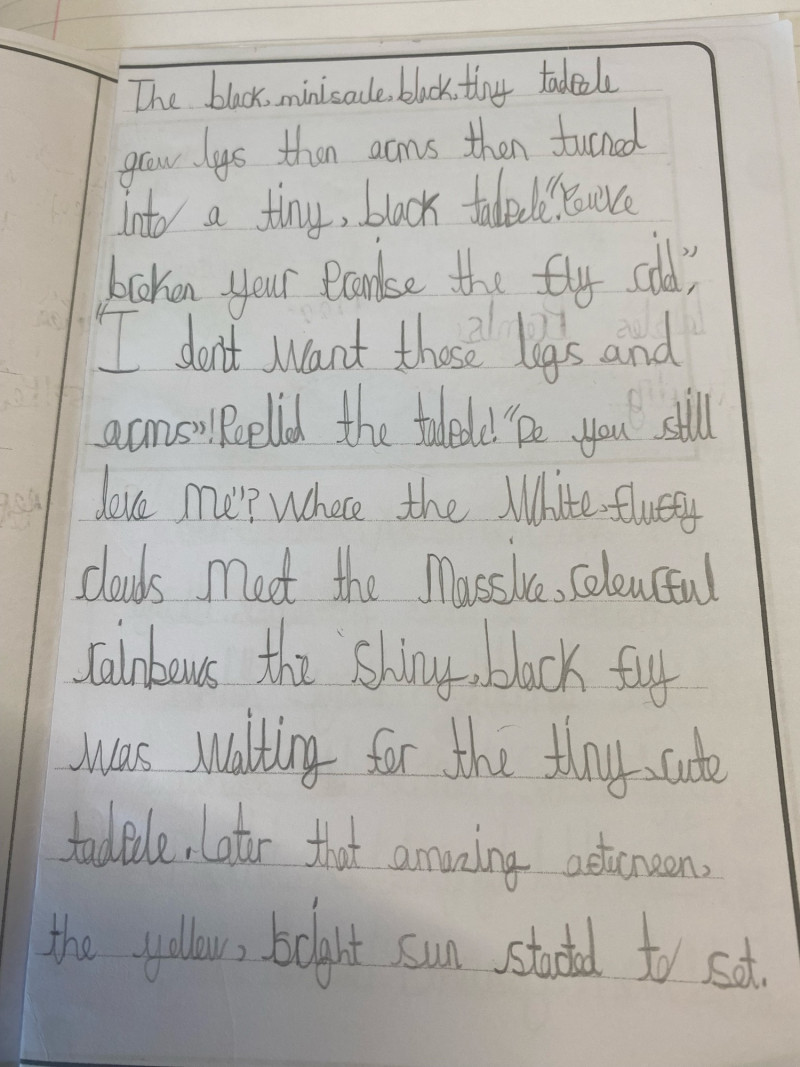 The black, minisaule, black, tiny tadpole
grew legs then arms then turned
into a tiny, black tadpole". "You've
broken your promise the fly cdd",
"I don't want these legs and
arms"! Replied the tadpole! "Do you still
love me"? Where the White, fluffy
clouds meet the massive, colourful
rainbows the shiny, black fly
was waiting for the tiny, cute
tadpole. Later that amazing afternoon,
the yellow, bright sun started to set.